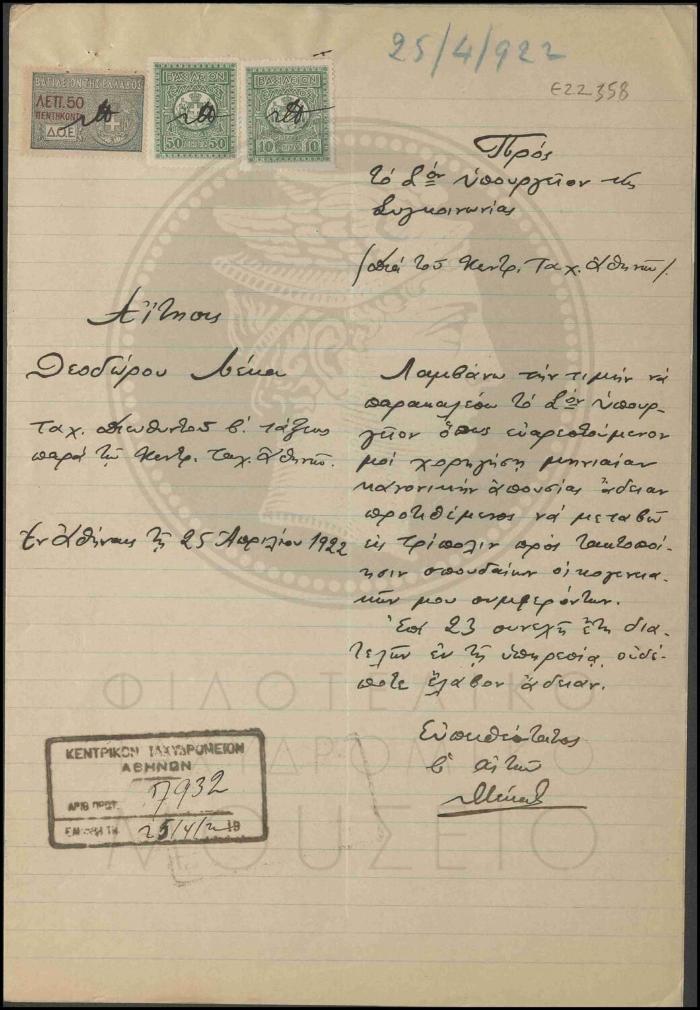 25/4/922
E22358
ΒΑΣΙΛΕΙΟΝ ΤΗΣ ΕΛΛΑΔΟΣ
ΛΕΠ. 50
ΠΕΝΤΗΚΟΝΤΑ
Δ.Ο.Ε.
ΒΑΣΙΛΕΙΟΝ
50 50
ΒΑΣΙΛΕΙΟΝ
10 10
Πρός
τό Σ<sup>όν</sup> Ὑπουργεῖον τῆς
Συγκοινωνίας
/διά τοῦ Κεντρ. Ταχ. Ἀθηνῶν/.
Αἴτησις
Θεοδώρου Λέκα
Ταχ. Διευθυντοῦ β. τάξεως
παρά τῷ Κεντρ. Ταχ. Ἀθηνῶν.
Ἐν Ἀθήναις τῇ 25 Ἀπριλίου 1922
Λαμβάνω τήν τιμήν νά
παρακαλέσω τό Σ<sup>όν</sup> Ὑπουρ-
γεῖον ὅπως εὐαρεστούμενον
μοί χορηγήσῃ μηνιαίαν
κανονικήν ἀπουσίας ἄδειαν
προτιθέμενος νά μεταβῶ
εἰς Τρίπολιν πρός τακτοποί-
ησιν σπουδαίων οἰκογενεια-
κῶν μου συμφερόντων.
Ἐπί 23 συνεχῆ ἔτη δια-
τελῶν ἐν τῇ ὑπηρεσίᾳ οὐδέ-
ποτε ἔλαβον ἄδειαν.
Εὐπειθέστατος
ὁ αἰτῶν
ΚΕΝΤΡΙΚΟΝ ΤΑΧΥΔΡΟΜΕΙΟΝ
ΑΘΗΝΩΝ
ΑΡΙΘ. ΠΡΩΤ. 7932
25/4/2 19
ΦΙΛΟΤΕΛΙΚΟ
ΤΑΧΥΔΡΟΜΙΚΟ
ΜΟΥΣΕΙΟ